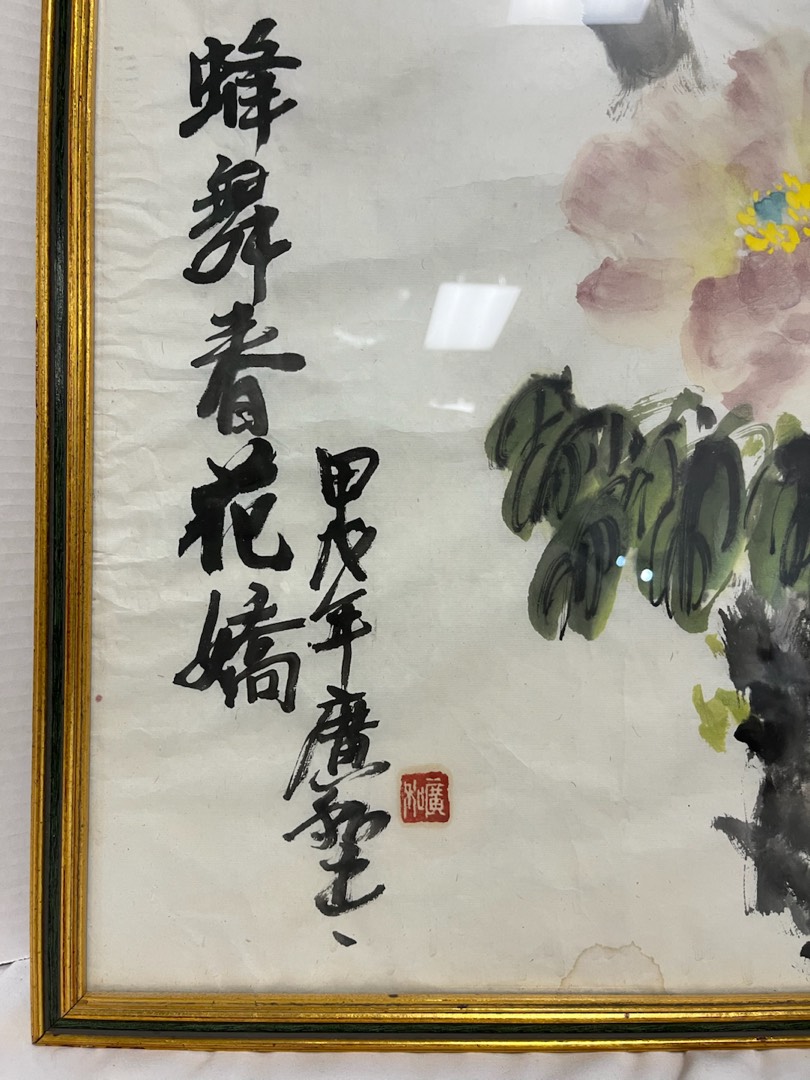 蜂舞春花嬌
甲戌年廣